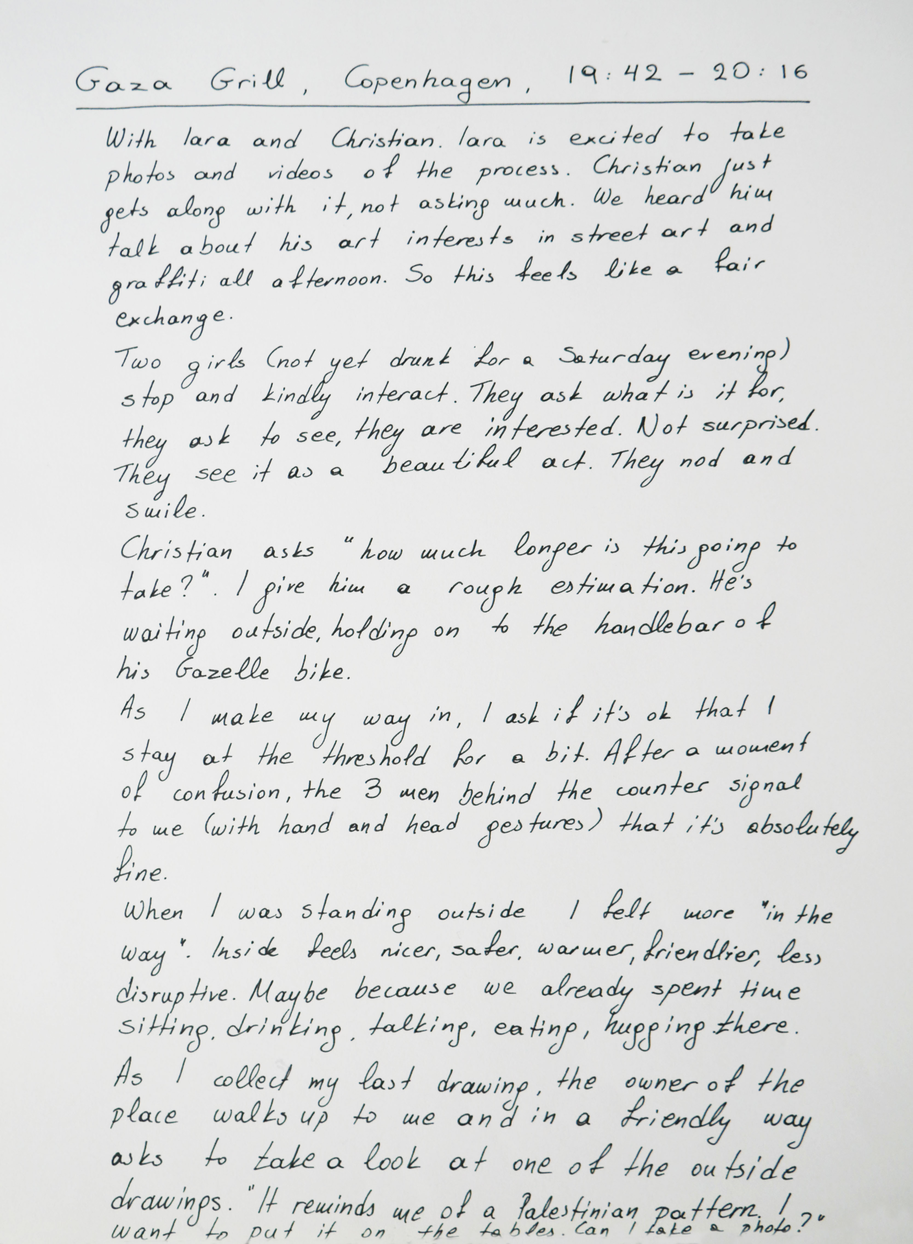 Gaza Grill, Copenhagen, 19:42 - 20:16
With lara and Christian. lara is excited to take
photos and videos of the process. Christian just
gets along with it, not asking much. We heard him
talk about his art interests in street art and
graffiti all afternoon. So this feels like a fair
exchange.
Two girls (not yet drunk for a Saturday evening)
stop and kindly interact. They ask what is it for,
they ask to see, they are interested. Not surprised.
They see it as a beautiful act. They nod and
smile.
Christian asks "how much longer is this going to
take?". I give him a rough estimation. He's
waiting outside, holding on to the handlebar of
his Gazelle bike.
As I make my way in, I ask if it's ok that I
stay at the threshold for a bit. After a moment
of confusion, the 3 men behind the counter signal
to me (with hand and head gestures) that it's absolutely
fine.
When I was standing outside I felt more "in the
way". Inside feels nicer, safer, warmer, friendlier, less
disruptive. Maybe because we already spent time
sitting, drinking, talking, eating, hugging there.
As I collect my last drawing, the owner of the
place walks up to me and in a friendly way
asks to take a look at one of the outside
drawings. "It reminds me of a Palestinian pattern. I
want to put it on the tables. Can I take a photo?"